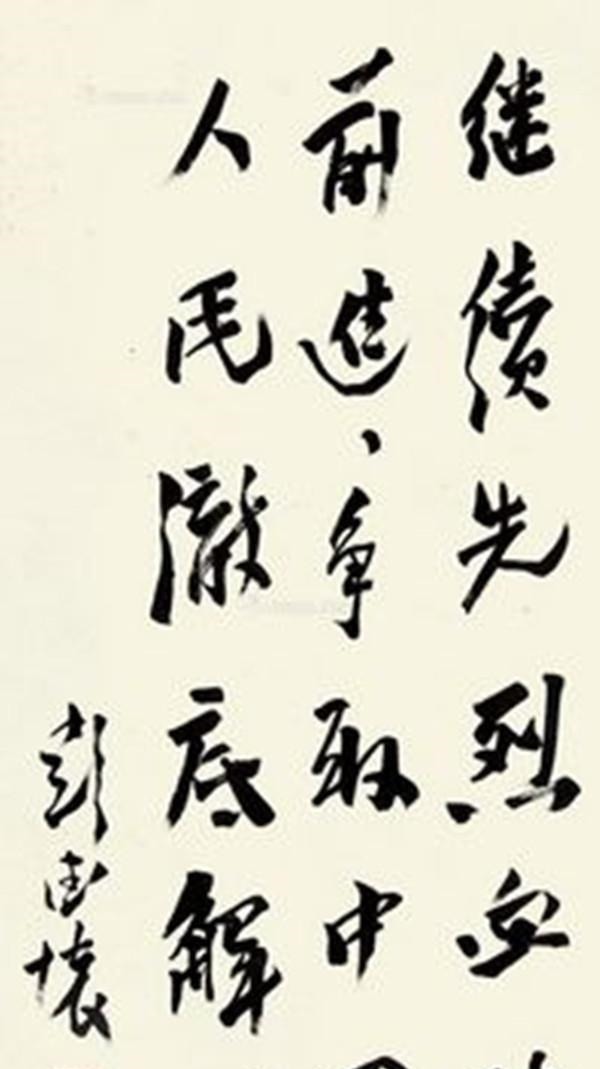 继续先烈血
前进、争取中
人民澈底解
彭德怀